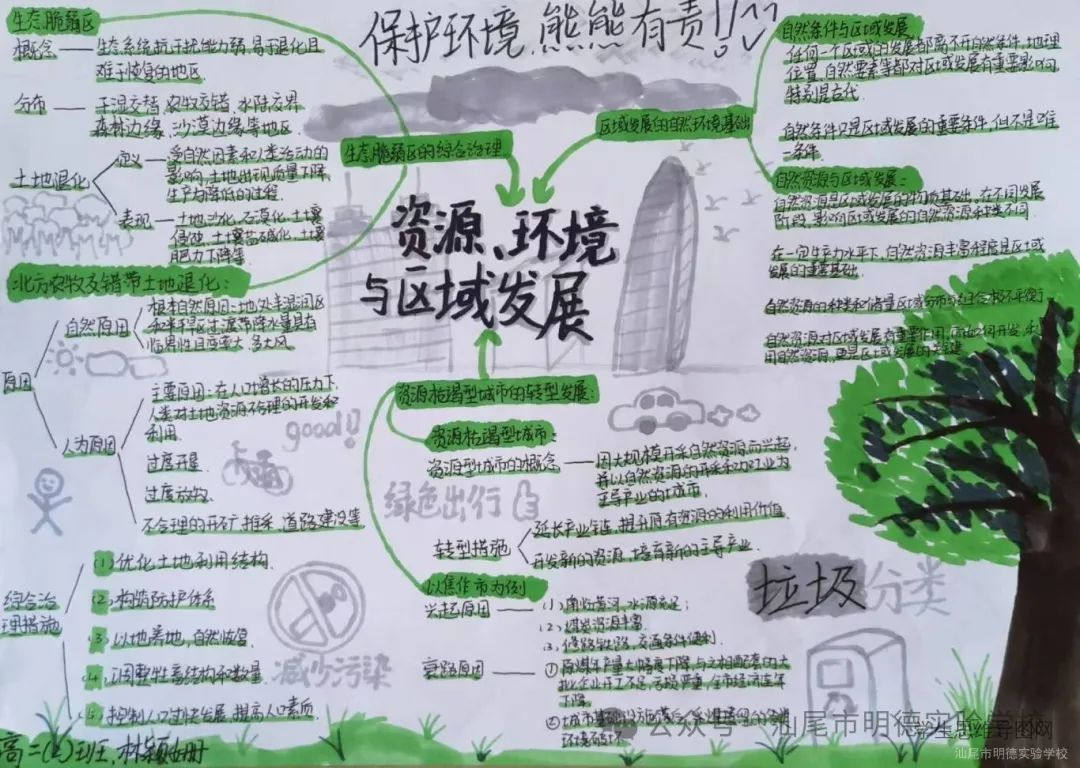 保护环境,熊熊有责!!
资源、环境
与区域发展
生态脆弱区的综合治理
生态脆弱区
概念
生态系统抗干扰能力弱,易于退化且
难于恢复的地区
分布
干湿交替、农牧交错、水陆交界
森林边缘、沙漠边缘等地区
土地退化
定义
受自然因素和人类活动的
影响,土地出现质量下降,
生产力降低的过程.
表现
土地沙化、石漠化、土壤
侵蚀、土壤盐碱化、土壤
肥力下降等.
北方农牧交错带土地退化:
原因
自然原因
根本自然原因:地处半湿润区
和半干旱区过渡带,降水量具有
临界性且变率大,多大风
人为原因
主要原因:在人口增长的压力下,
人类对土地资源不合理的开发和
利用.
过度开垦
过度放牧
不合理的开矿、樵采、道路建设等
综合治
理措施
(1),优化土地利用结构.
(2),构筑防护体系
(3),以地养地,自然恢复.
(4),调整牲畜结构和数量
(5),控制人口过快发展,提高人口素质.
区域发展的自然环境基础
自然条件与区域发展
任何一个区域的发展都离不开自然条件,地理
位置、自然要素等都对区域发展有重要影响,
特别是古代.
自然条件只是区域发展的重要条件,但不是唯
一条件.
自然资源与区域发展:
自然资源是区域发展的物质基础。在不同发展
阶段,影响区域发展的自然资源种类不同.
在一定生产力水平下,自然资源丰富程度是区域
发展的重要基础.
自然资源的种类和储量区域分布与组合极不平衡
自然资源对区域发展有重要作用,而如何开发、利
用自然资源,更是区域发展的关键
资源枯竭型城市的转型发展:
资源枯竭型城市:
资源型城市的概念
因大规模开采自然资源而兴起,
并以自然资源的开采和加工业为
主导产业的城市.
转型措施
延长产业链,提升原有资源的利用价值
开发新的资源,培育新的主导产业.
以焦作市为例
兴起原因
(1),南临黄河,水源充足;
(2),煤炭资源丰富
(3),修路铁路,交通条件便利.
衰落原因
① 原煤年产量大幅度下降,与之相配套的大
批企业开工不足,亏损严重,全市经济连年
下降
② 城市基础设施落后
环境破坏
good!!
绿色出行
减少污染
垃圾分类
高二(2)班,林颖
公众号·汕尾市明德实验学校
思维导图网
汕尾市明德实验学校